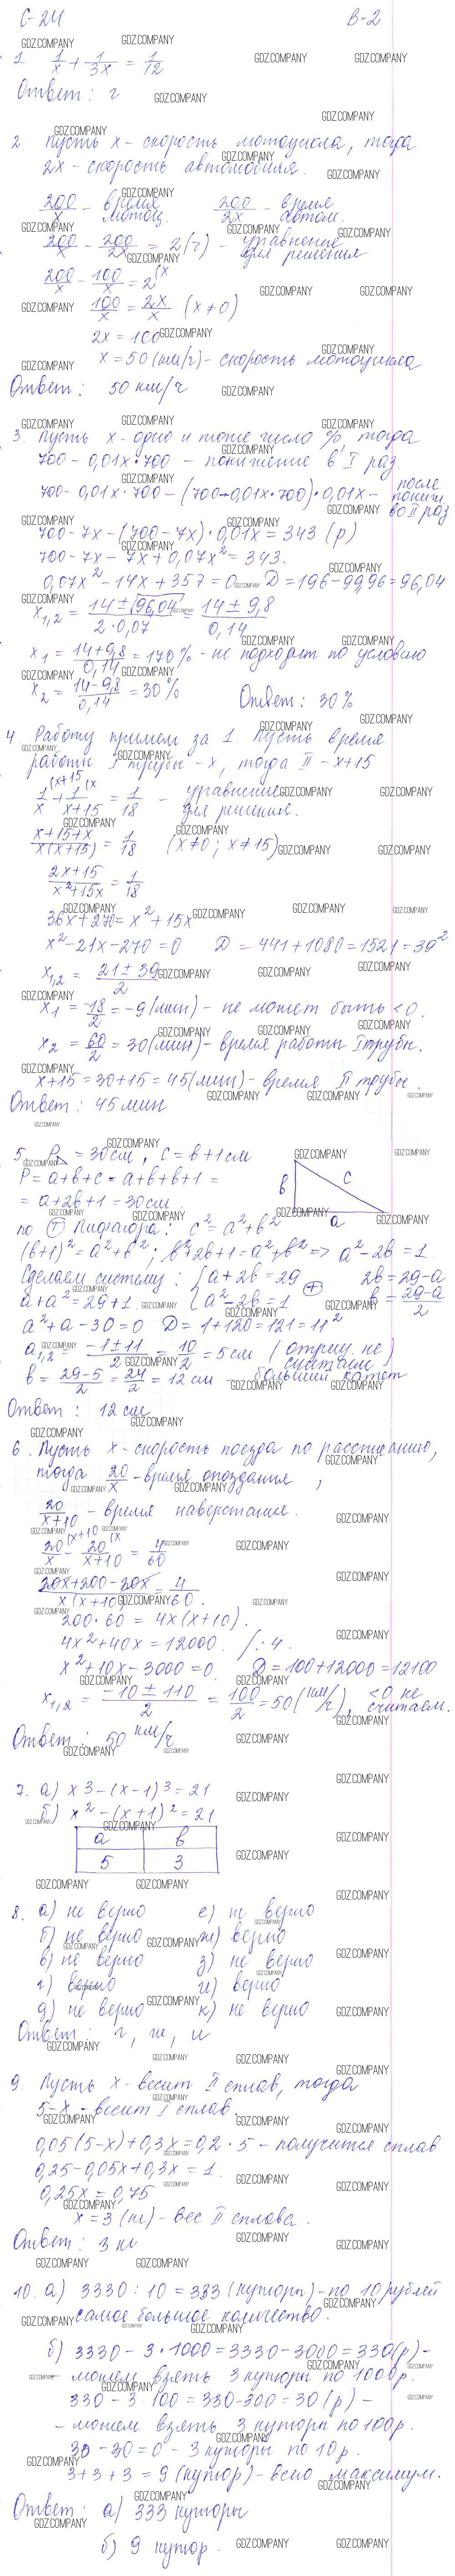 С-24 В-2
1. 1/x + 1/3x = 1/12
Ответ: г
2. Пусть x - скорость мотоцикла, тогда
2x - скорость автомобиля.
200/x - время мотоц. 200/2x - время автом.
200/x - 200/2x = 2(ч) - уравнение для решения
200/x - 100/x = 2 (x
100/x = 2x/x (x≠0)
2x = 100
x = 50 (км/ч) - скорость мотоцикла
Ответ: 50 км/ч
3. Пусть x - одно и тоже число %, тогда
700 - 0,01x·700 - понижение в I раз.
700 - 0,01x·700 - (700-0,01x·700)·0,01x - после пониж. во II раз
700 - 7x - (700 - 7x)·0,01x = 343 (р)
700 - 7x - 7x + 0,07x² = 343.
0,07x² - 14x + 357 = 0 D = 196 - 99,96 = 96,04
x1,2 = (14 ± √96,04)/(2·0,07) = (14 ± 9,8)/0,14
x1 = (14+9,8)/0,14 = 170% - не подходит по условию
x2 = (14-9,8)/0,14 = 30% Ответ: 30%
4. Работу примем за 1 Пусть время
работы I трубы - x, тогда II - x+15
1/x (x+15 + 1/(x+15) (x = 1/18 - уравнение для решения.
(x+15+x)/(x(x+15)) = 1/18 (x≠0; x≠15)
(2x+15)/(x²+15x) = 1/18
36x + 270 = x² + 15x
x² - 21x - 270 = 0 D = 441 + 1080 = 1521 = 39²
x1,2 = (21 ± 39)/2
x1 = -18/2 = -9 (мин) - не может быть < 0.
x2 = 60/2 = 30 (мин) - время работы I трубы.
x+15 = 30+15 = 45 (мин) - время II трубы.
Ответ: 45 мин
5. P△ = 30 см, c = b + 1 см
P = a+b+c = a+b+b+1 =
= a+2b+1 = 30 см
b c a
по Т Пифагора: c² = a² + b²
(b+1)² = a² + b²; b²+2b+1 = a²+b² => a² - 2b = 1
Сделаем систему: { a+2b = 29 2b = 29-a
a + a² = 29+1. { a² - 2b = 1 + b = (29-a)/2
a² + a - 30 = 0 D = 1+120 = 121 = 11²
a1,2 = (-1 ± 11)/2 = 10/2 = 5 см (отриц. не считаем)
b = (29-5)/2 = 24/2 = 12 см - больший катет
Ответ: 12 см
6. Пусть x - скорость поезда по рассписанию,
тогда 20/x - время опоздания,
20/(x+10) - время наверстания.
20/x (x+10 - 20/(x+10) (x = 4/60
(20x+200-20x)/(x(x+10)) = 4/60.
200·60 = 4x(x+10).
4x² + 40x = 12000. /:4.
x² + 10x - 3000 = 0. D = 100+12000 = 12100
x1,2 = (-10 ± 110)/2 = 100/2 = 50 (км/ч), <0 не считаем.
Ответ: 50 км/ч
7. а) x³ - (x-1)³ = 21
б) x² - (x+1)² = 21
а б
5 3
8. а) не верно е) не верно
б) не верно ж) верно
в) не верно з) не верно
г) верно и) верно
д) не верно к) не верно
Ответ: г, ж, и
9. Пусть x - весит II сплав, тогда
5-x - весит I сплав.
0,05(5-x)+0,3x = 0,2·5 - получится сплав
0,25 - 0,05x + 0,3x = 1.
0,25x = 0,75
x = 3 (кг) - вес II сплава.
Ответ: 3 кг
10. а) 3330 : 10 = 333 (купюры) - по 10 рублей
самое большое количество.
б) 3330 - 3·1000 = 3330-3000 = 330(р) -
- можем взять 3 купюры по 1000р.
330 - 3·100 = 330-300 = 30 (р) -
- можем взять 3 купюры по 100р.
30 - 30 = 0 - 3 купюры по 10р.
3+3+3 = 9 (купюр) - всего максимум.
Ответ: а) 333 купюры
б) 9 купюр.
GDZ.COMPANY